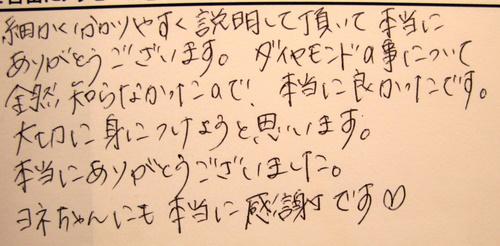 細かく分かりやすく説明して頂いて本当に
ありがとうございます。ダイヤモンドの事について
全然知らなかったので、本当に良かったです。
大切に身につけようと思います。
本当にありがとうございました。
ヨネちゃんにも本当に感謝です♡